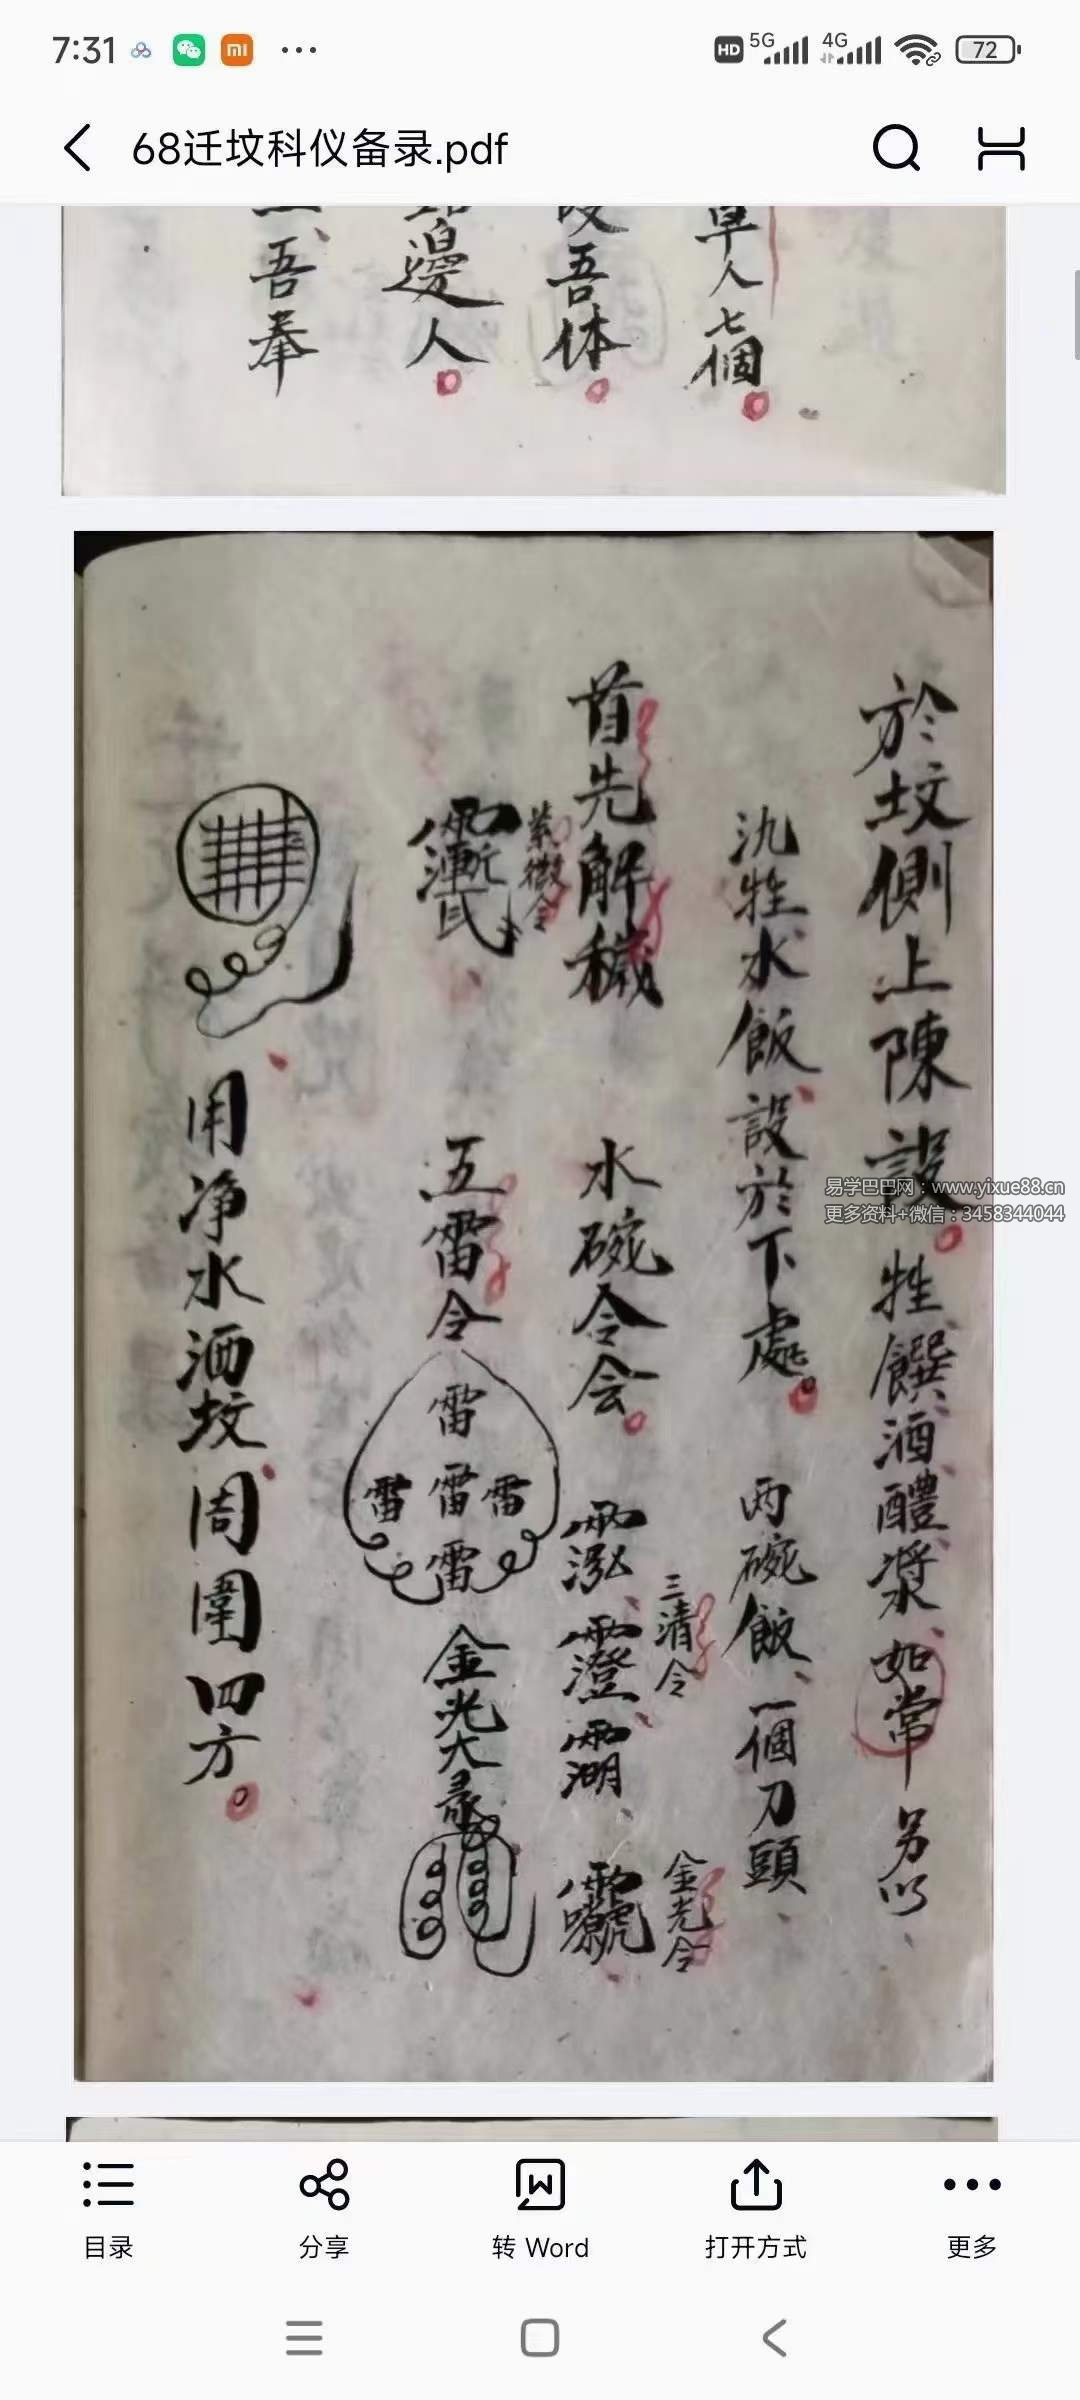 7:31
HD 5G 4G 72
68迁坟科仪备录.pdf
草人七個
吾体
邊人
吾奉
於坟側上陳設。牲饌酒醴漿如常另以
氿牲水飯設於下處。两碗飯、一個刀頭、
首先解穢 水碗令会。
三清令
金光令
紫微令
五雷令 雷 雷 雷 雷 雷 金光大篆
用净水洒坟、周圍四方。
易学巴巴网：www.yixue88.cn
更多资料+微信：3458344044
目录
分享
转 Word
打开方式
更多